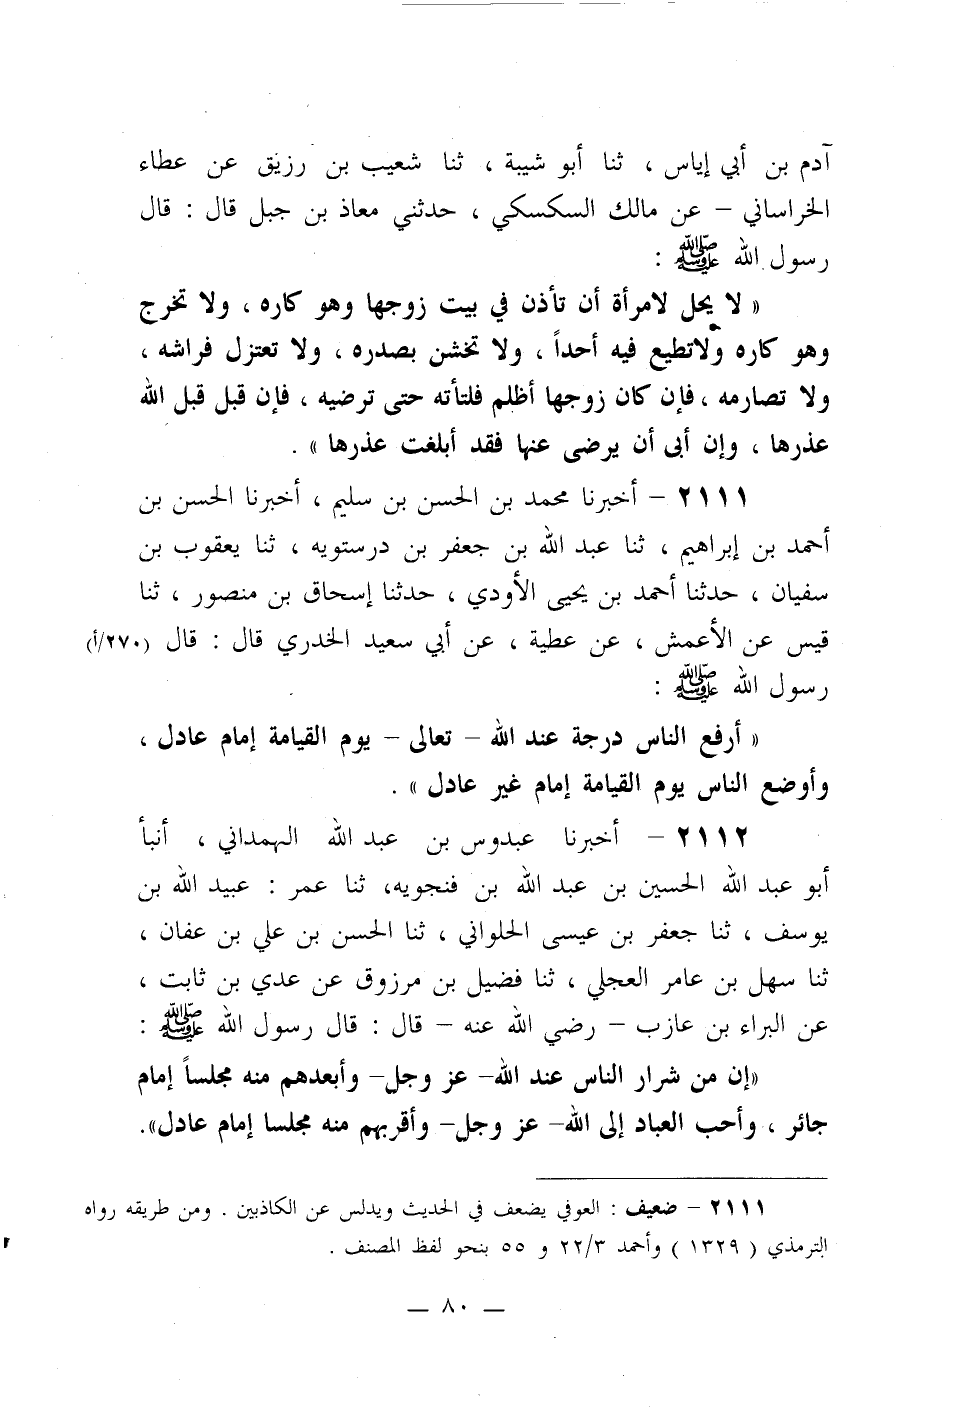 آدم بن أبي إياس ، ثنا أبو شيبة ، ثنا شعيب بن رزيق عن عطاء
الخراساني – عن مالك السكسكي ، حدثني معاذ بن جبل قال : قال
رسول الله ﷺ :
« لا يحل لامرأة أن تأذن في بيت زوجها وهو كاره ، ولا تخرج
وهو كاره ولاتطيع فيه أحداً ، ولا تخشن بصدره ، ولا تعتزل فراشه ،
ولا تصارمه ، فإن كان زوجها أظلم فلتأته حتى ترضيه ، فإن قبل قبل الله
عذرها ، وإن أبى أن يرضى عنها فقد أبلغت عذرها » .
٢١١١ – أخبرنا محمد بن الحسن بن سليم ، أخبرنا الحسن بن
أحمد بن إبراهيم ، ثنا عبد الله بن جعفر بن درستويه ، ثنا يعقوب بن
سفيان ، حدثنا أحمد بن يحيى الأودي ، حدثنا إسحاق بن منصور ، ثنا
قيس عن الأعمش ، عن عطية ، عن أبي سعيد الخدري قال : قال (٢٧٠/أ)
رسول الله ﷺ :
« أرفع الناس درجة عند الله – تعالى – يوم القيامة إمام عادل ،
وأوضع الناس يوم القيامة إمام غير عادل » .
٢١١٢ – أخبرنا عبدوس بن عبد الله الهمداني ، أنبأ
أبو عبد الله الحسين بن عبد الله بن فنجويه، ثنا عمر : عبيد الله بن
يوسف ، ثنا جعفر بن عيسى الحلواني ، ثنا الحسن بن علي بن عفان ،
ثنا سهل بن عامر العجلي ، ثنا فضيل بن مرزوق عن عدي بن ثابت ،
عن البراء بن عازب – رضي الله عنه – قال : قال رسول الله ﷺ :
«إن من شرار الناس عند الله– عز وجل– وأبعدهم منه مجلساً إمام
جائر ، وأحب العباد إلى الله– عز وجل– وأقربهم منه مجلسا إمام عادل».
٢١١١ – ضعيف : العوفي يضعف في الحديث ويدلس عن الكاذبين . ومن طريقه رواه
الترمذي ( ١٣٢٩ ) وأحمد ٢٢/٣ و ٥٥ بنحو لفظ المصنف .
— ٨٠ —